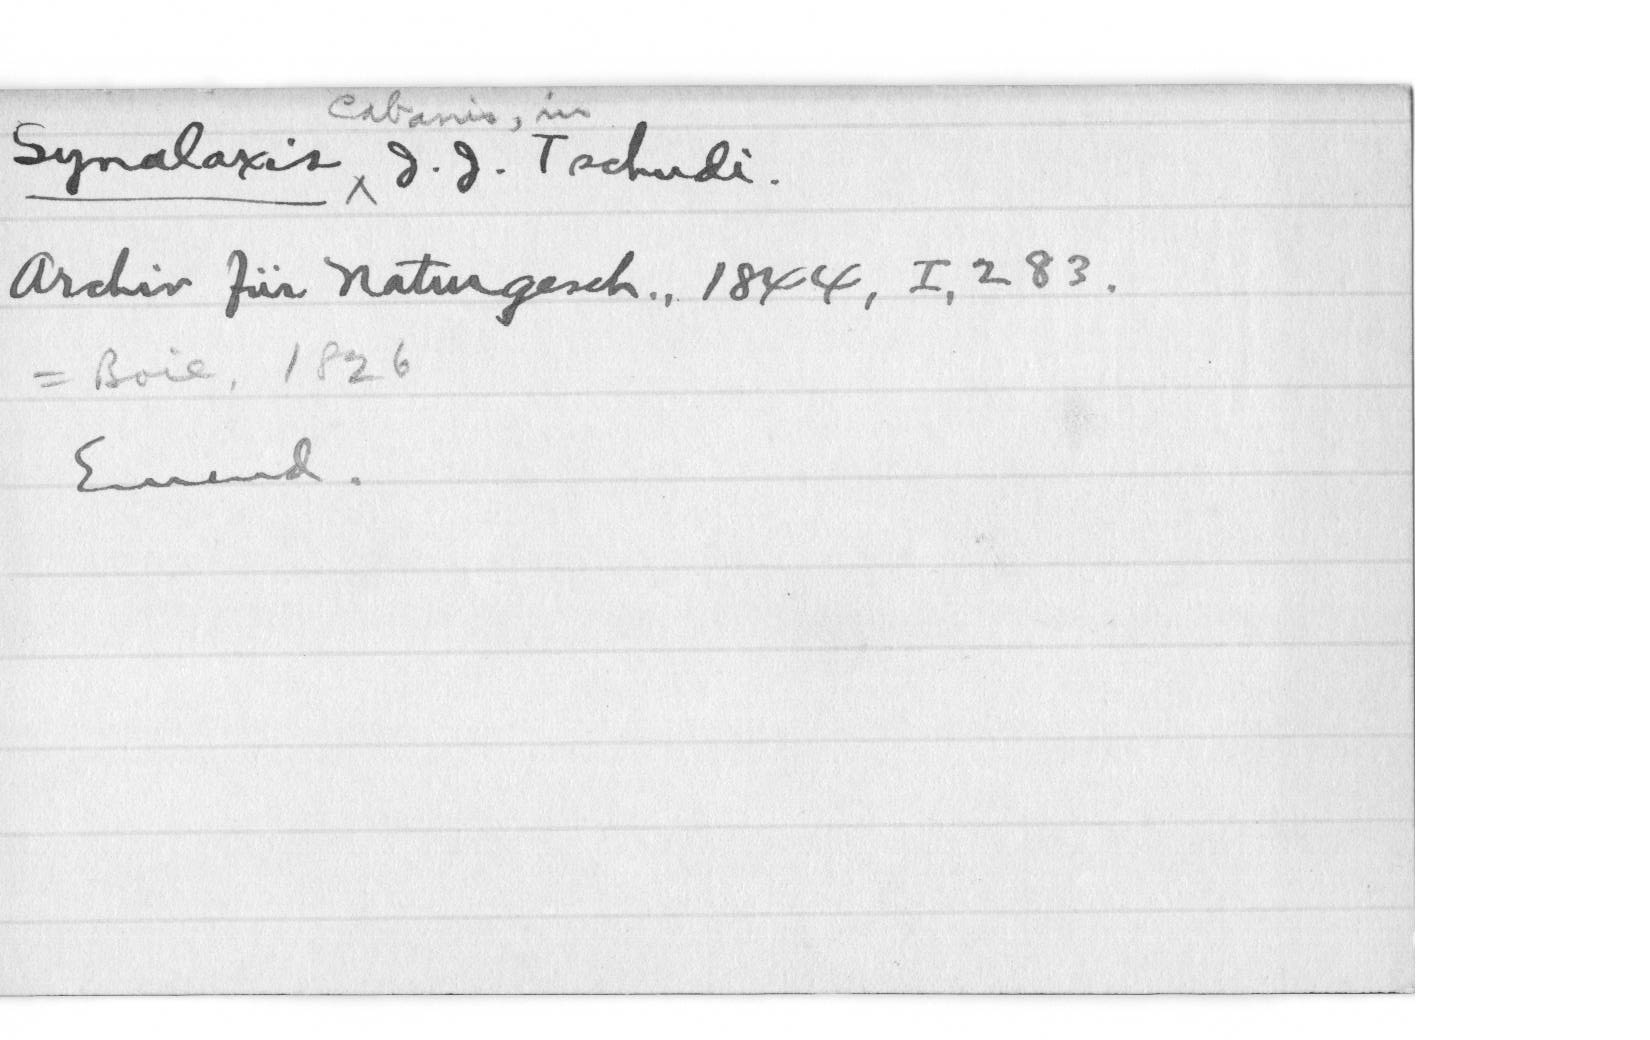 Synalaxis ^ Cabanis, in J. J. Tschudi.
Archiv für Naturgesch., 1844, I, 283.
= Boie, 1826
Emend.